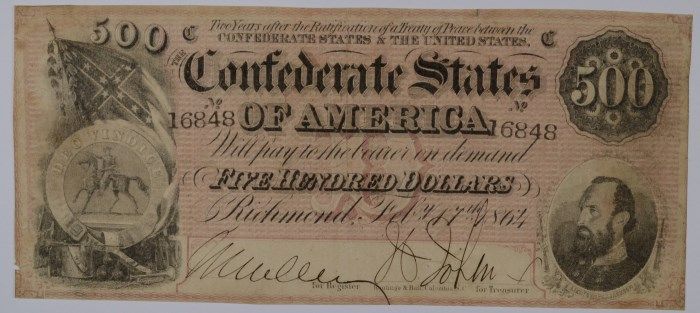 Two Years after the Ratification of a Treaty of Peace between the
CONFEDERATE STATES & THE UNITED STATES.
500 C C
THE
Confederate States
500
No No
16848 OF AMERICA 16848
DEO VINDICE
Will pay to the bearer on demand
FIVE HUNDRED DOLLARS
Richmond, Feby. 17th 1864
for Register Keatinge & Ball, Columbia, S.C. for Treasurer